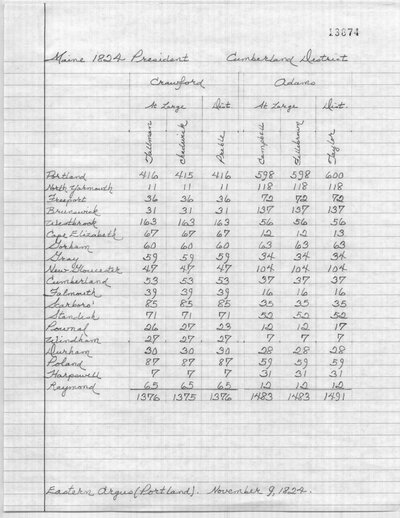 13874
Maine 1824 President Cumberland District
Crawford Adams
At Large Dist. At Large Dist.
Tallman Chadwick Preble Campbell Fillebrown Taylor
Portland 416 415 416 598 598 600
North Yarmouth 11 11 11 118 118 118
Freeport 36 36 36 72 72 72
Brunswick 31 31 31 137 137 137
Westbrook 163 163 163 56 56 56
Cape Elizabeth 67 67 67 12 12 13
Gorham 60 60 60 63 63 63
Gray 59 59 59 34 34 34
New Gloucester 47 47 47 104 104 104
Cumberland 53 53 53 37 37 37
Falmouth 39 39 39 16 16 16
Scarboro' 85 85 85 35 35 35
Standish 71 71 71 52 52 52
Pownal 26 27 23 12 12 17
Windham 27 27 27 7 7 7
Durham 30 30 30 28 28 28
Poland 87 87 87 59 59 59
Harpswell 7 7 7 31 31 31
Raymond 65 65 65 12 12 12
1376 1375 1376 1483 1483 1491
Eastern Argus (Portland). November 9, 1824.